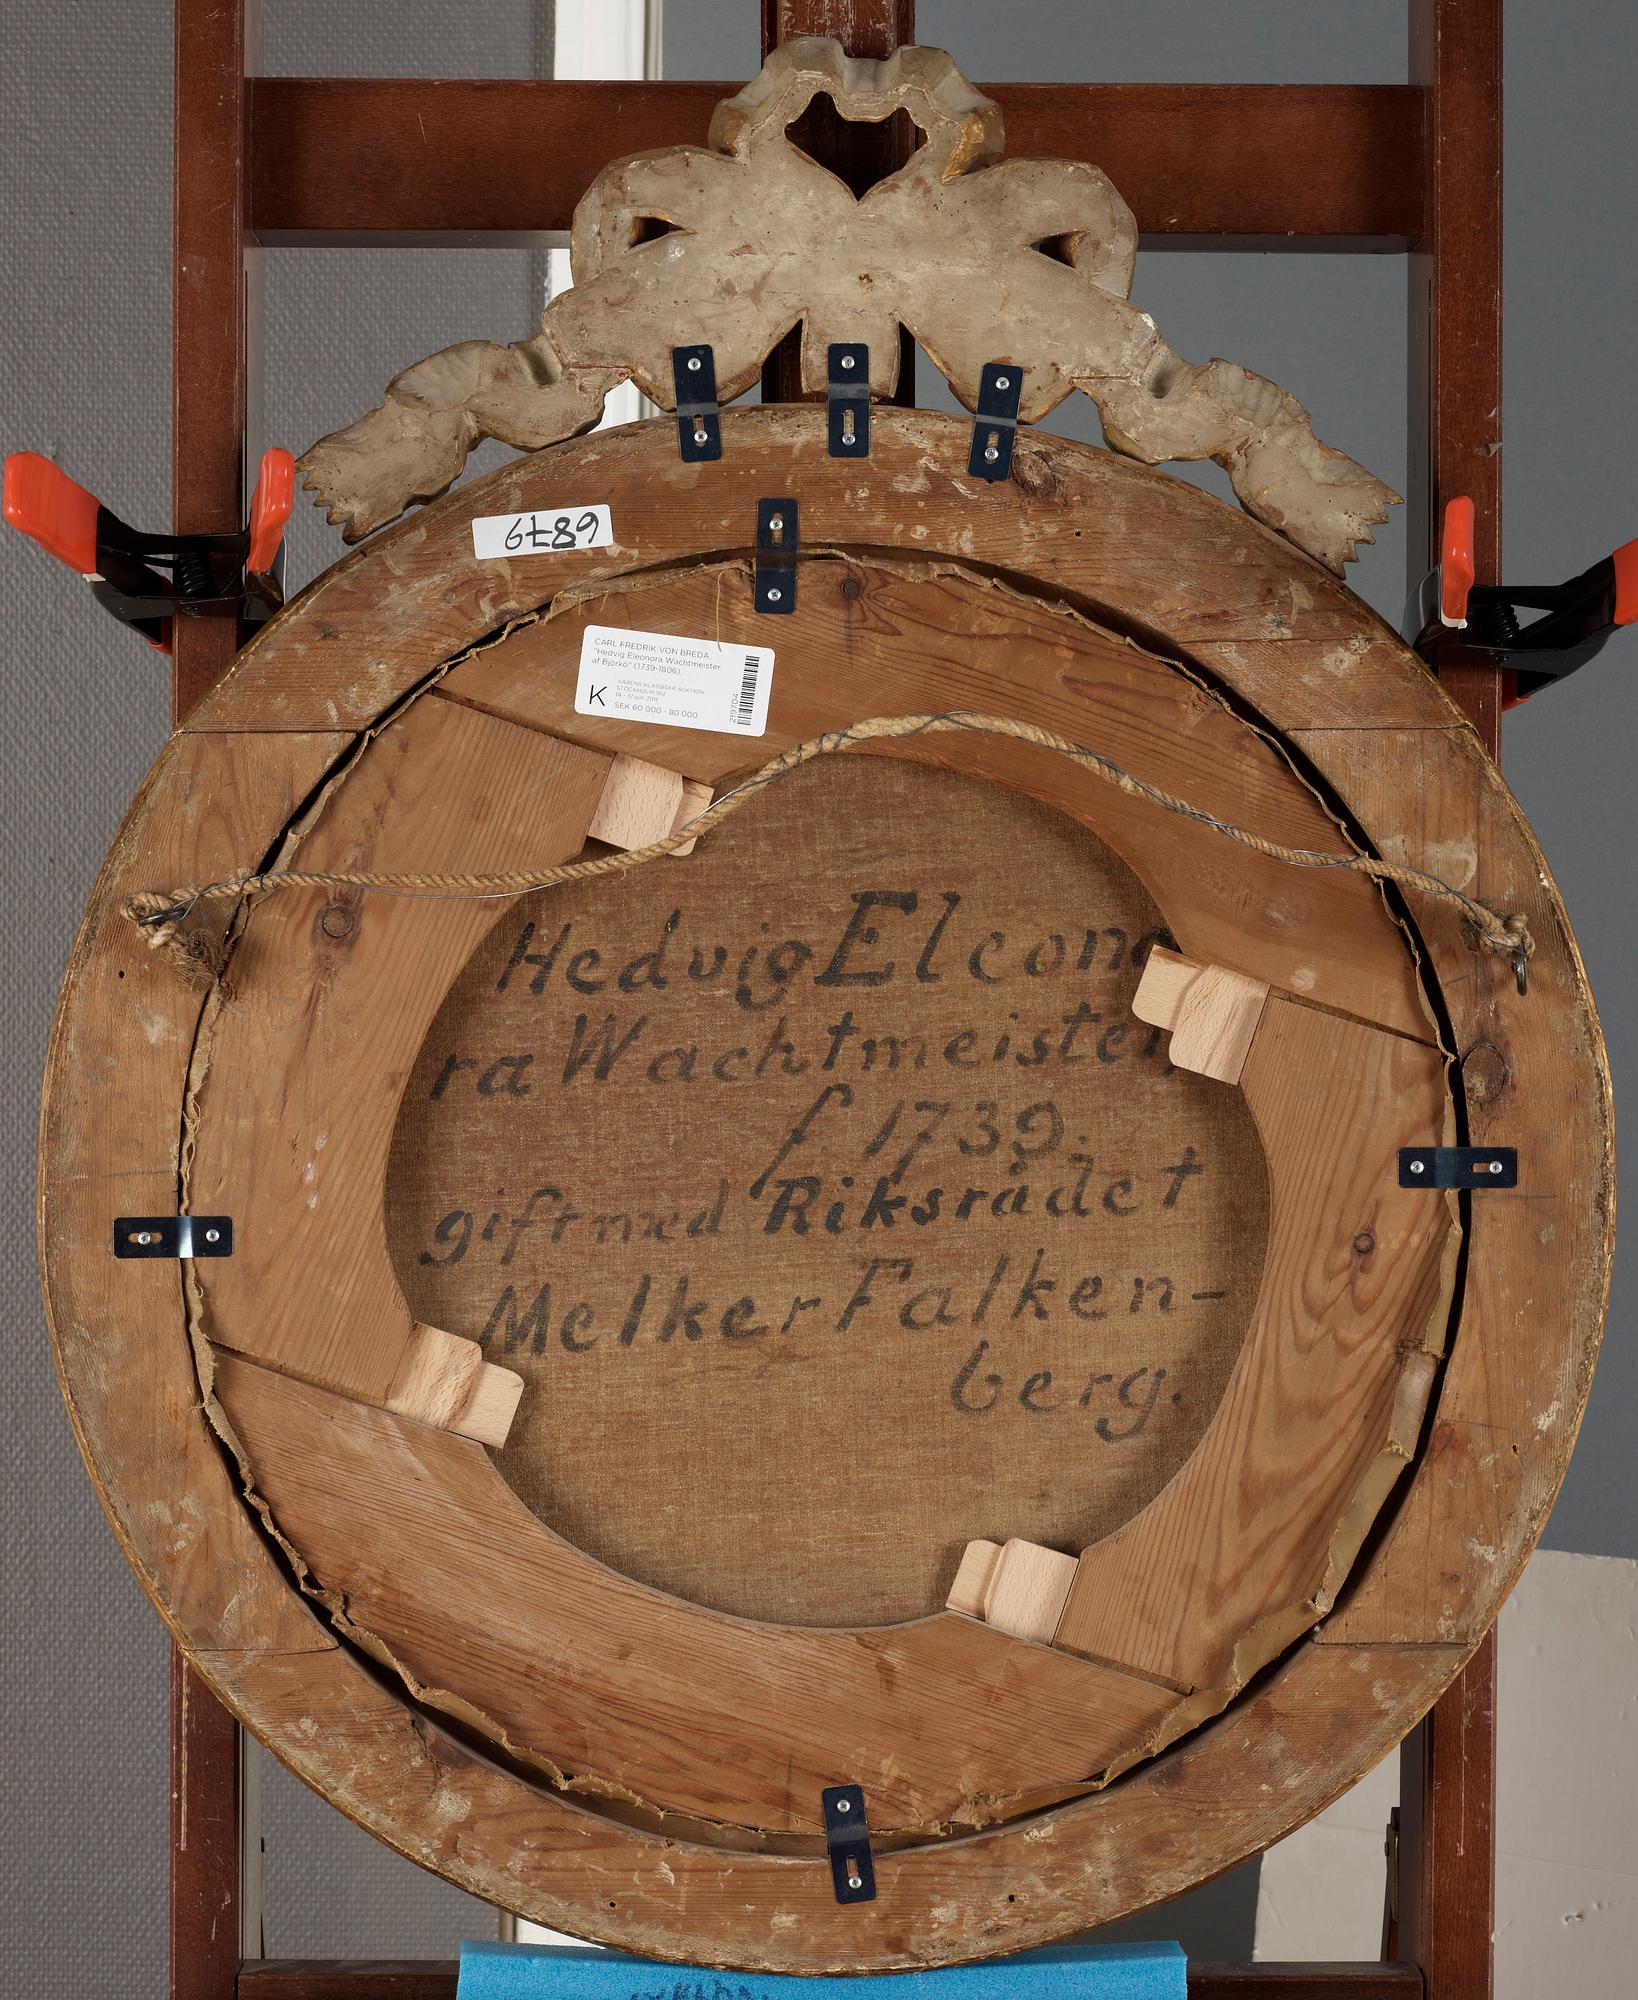 6879
CARL FREDRIK VON BREDA,
"Hedvig Eleonora Wachtmeister
af Björkö" (1739-1806).
K
VÅRENS KLASSISKA AUKTION,
STOCKHOLM 562
14 - 17 juni 2011
SEK 60 000 - 80 000
219704
Hedvig Eleono
ra Wachtmeister
f. 1739.
gift med Riksrådet
Melker Falken-
berg.